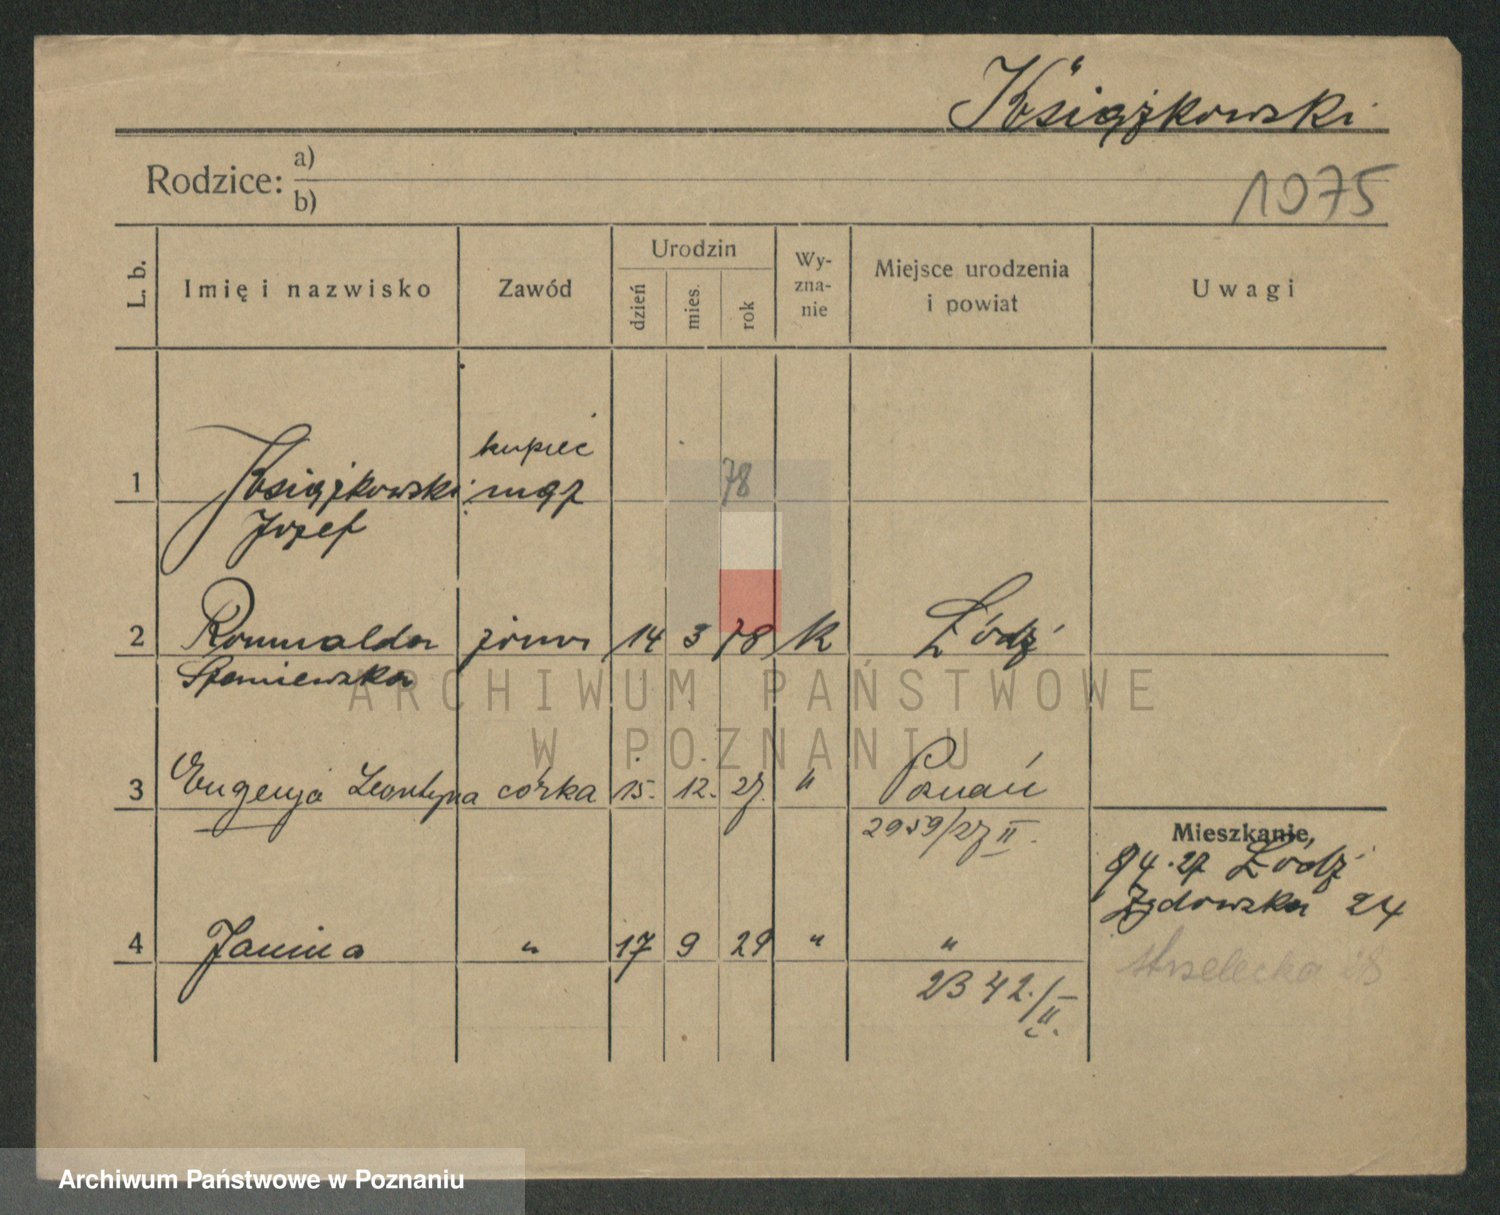 Książkowski
Rodzice: a)
b)
1075
L. b.
Imię i nazwisko
Zawód
Urodzin
dzień
mies.
rok
Wy-
zna-
nie
Miejsce urodzenia
i powiat
Uwagi
kupiec
1 Książkowski mąż 78
Józef
2 Romualda żona 14 3 78 k Łódź
Staniewska
ARCHIWUM PAŃSTWOWE
W POZNANIU
3 Eugenja Leontyna córka 15. 12. 27. " Poznań
2959/27 II.
Mieszkanie
Łódź
24
4 Janina " 17 9 29 " "
Strzelecka 28
2342/II.
Archiwum Państwowe w Poznaniu